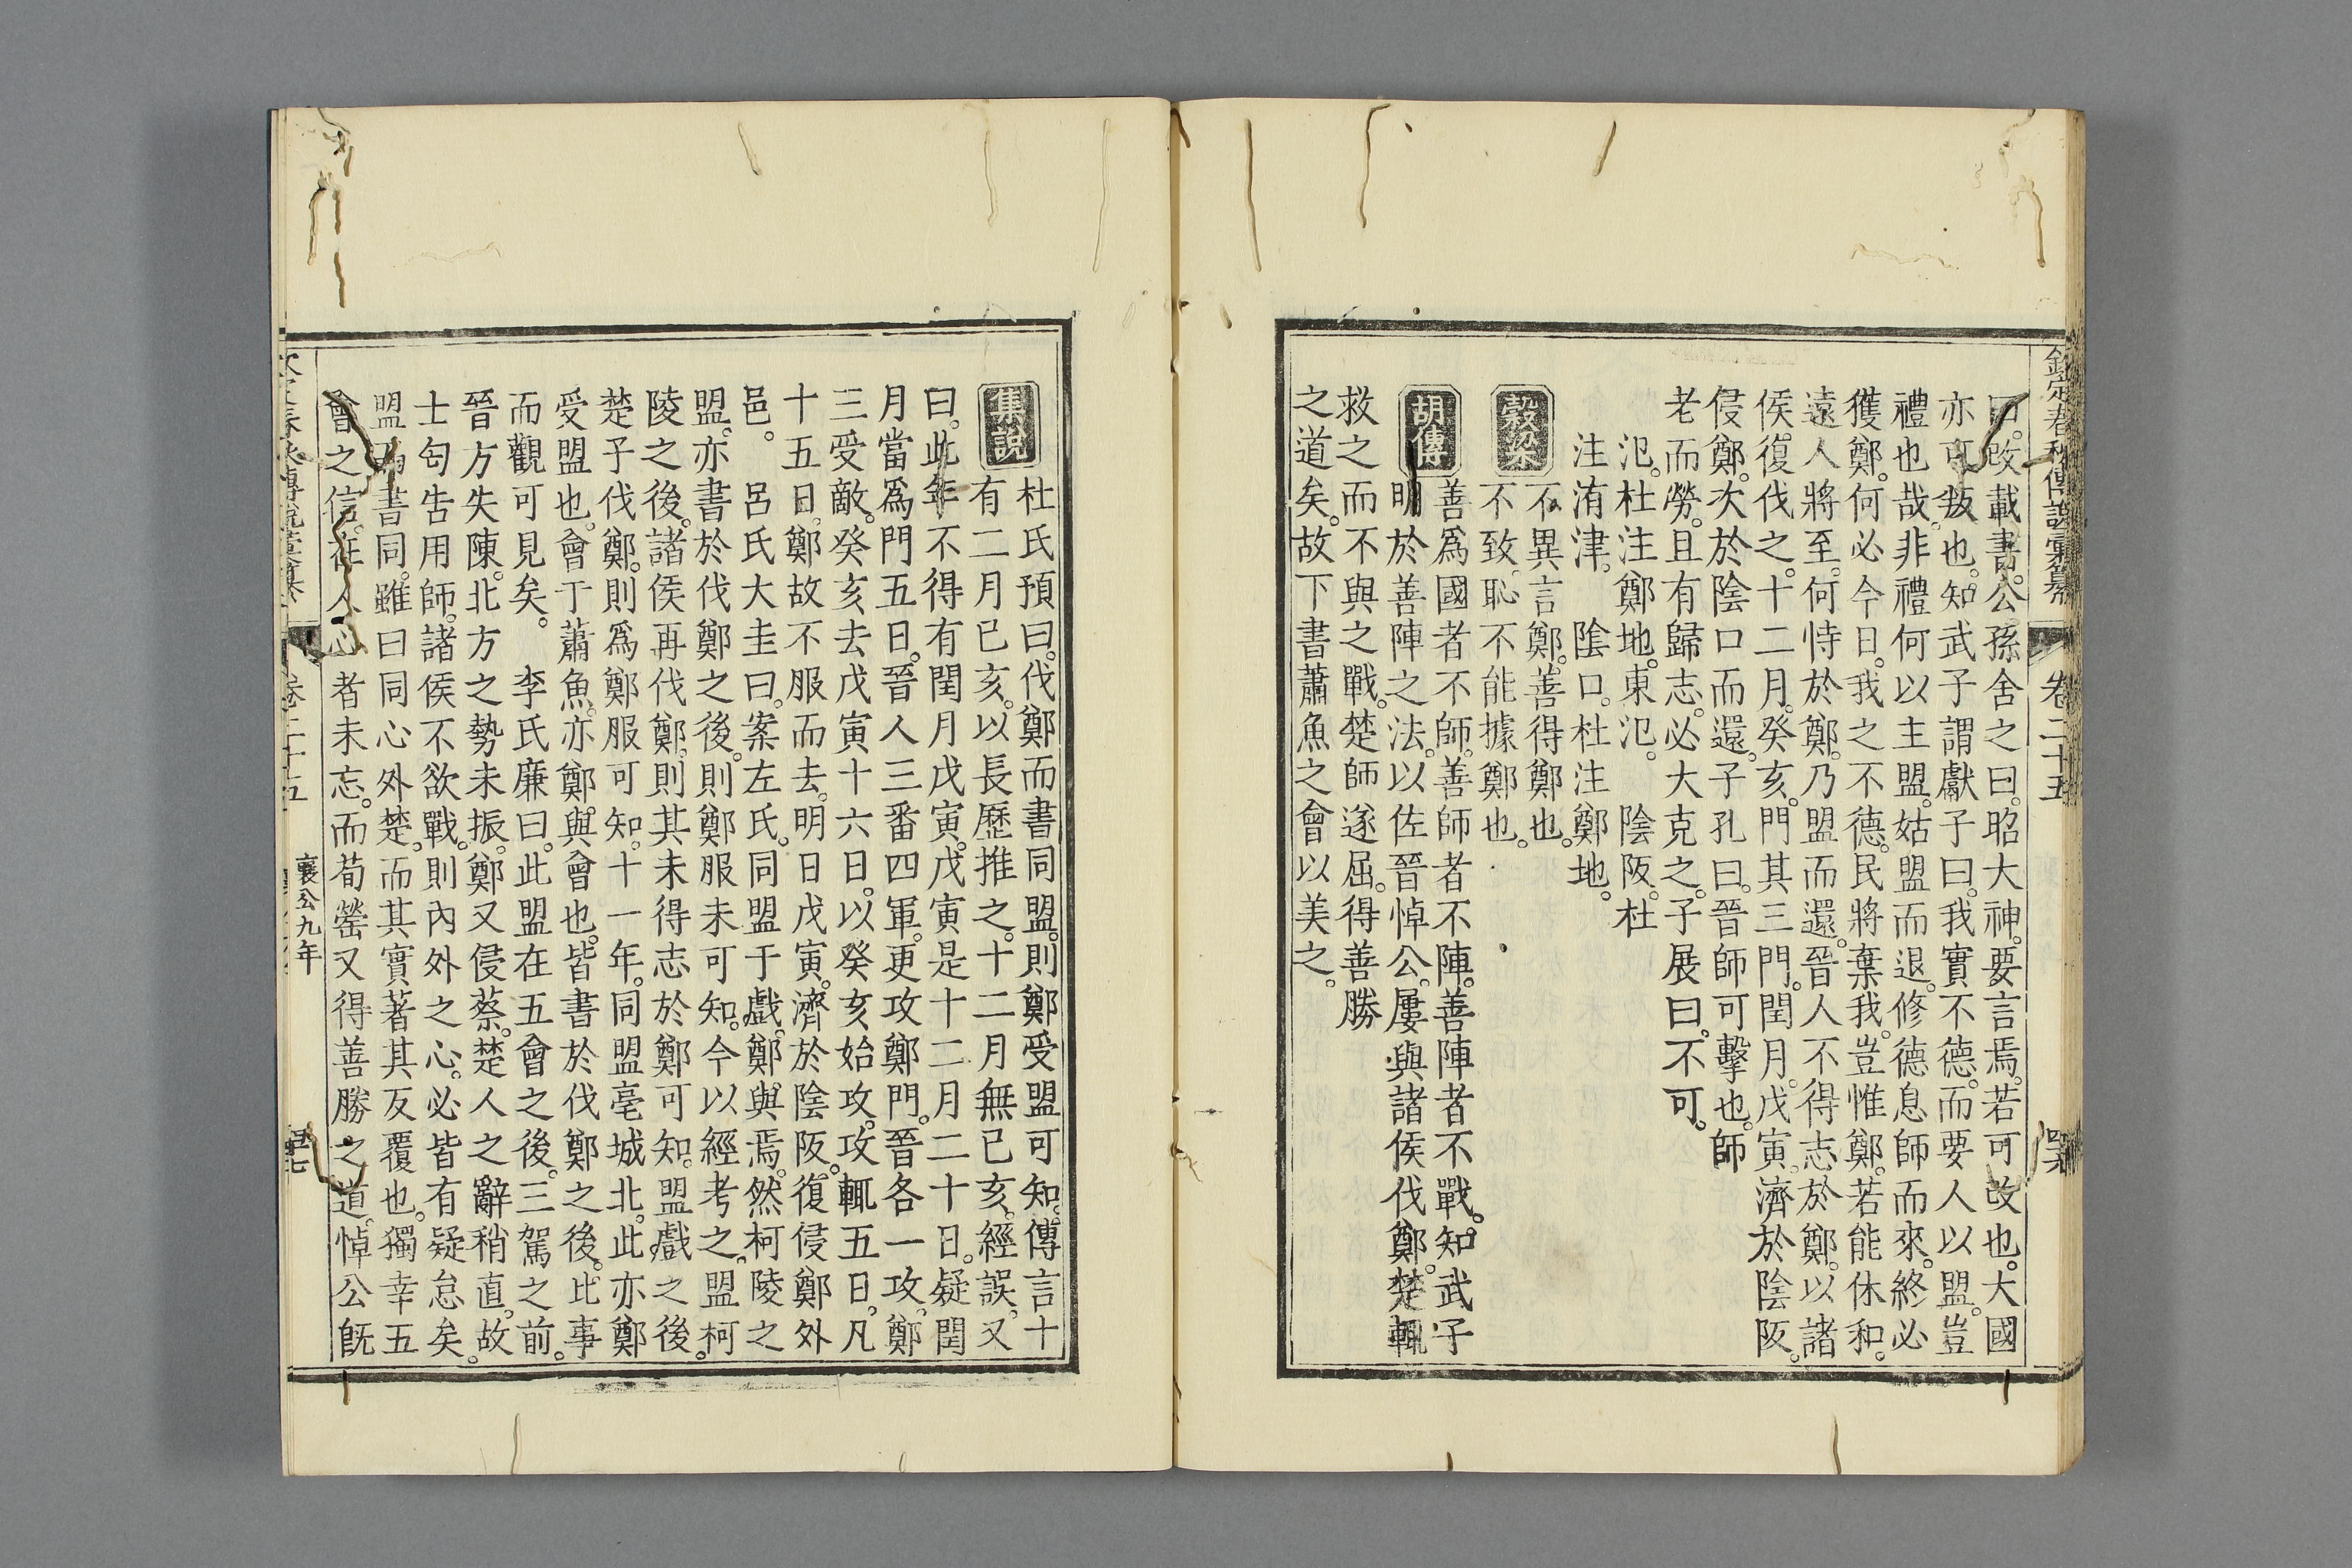 欽定春秋傳說彙纂 卷二十五
曰。改載書。公孫舍之曰。昭大神。要言焉。若可改也。大國
亦可叛也。知武子謂獻子曰。我實不德。而要人以盟。豈
禮也哉。非禮何以主盟。姑盟而退。修德息師而來。終必
獲鄭。何必今日。我之不德。民將棄我。豈惟鄭。若能休和。
遠人將至。何恃於鄭。乃盟而還。晉人不得志於鄭。以諸
侯復伐之。十二月。癸亥。門其三門。閏月。戊寅。濟於陰阪。
侵鄭。次於陰口而還。子孔曰。晉師可擊也。師
老而勞。且有歸志。必大克之。子展曰。不可。
氾。杜注鄭地。東氾。 陰阪。杜
注洧津。 陰口。杜注鄭地。
穀梁
不異言鄭。善得鄭也。
不致。恥不能據鄭也。
胡傳
善爲國者不師。善師者不陣。善陣者不戰。知武子
明於善陣之法。以佐晉悼公。屢與諸侯伐鄭。楚輒
救之而不與之戰。楚師遂屈。得善勝
之道矣。故下書蕭魚之會以美之。
集說
杜氏預曰。伐鄭而書同盟。則鄭受盟可知。傳言十
有二月己亥。以長歷推之。十二月無己亥。經誤。又
曰。此年不得有閏月戊寅。戊寅是十二月二十日。疑閏
月當爲門五日。晉人三番四軍。更攻鄭門。晉各一攻。鄭
三受敵。癸亥去戊寅十六日。以癸亥始攻。攻輒五日。凡
十五日。鄭故不服而去。明日戊寅。濟於陰阪。復侵鄭外
邑。 呂氏大圭曰。案左氏。同盟于戲。鄭與焉。然柯陵之
盟。亦書於伐鄭之後。則鄭服未可知。今以經考之。盟柯
陵之後。諸侯再伐鄭。則其未得志於鄭可知。盟戲之後。
楚子伐鄭。則爲鄭服可知。十一年。同盟亳城北。此亦鄭
受盟也。會于蕭魚。亦鄭與會也。皆書於伐鄭之後。比事
而觀可見矣。 李氏廉曰。此盟在五會之後。三駕之前。
晉方失陳。北方之勢未振。鄭又侵蔡。楚人之辭稍直。故
士匄吿用師。諸侯不欲戰。則內外之心。必皆有疑怠矣。
盟書同。雖曰同心外楚。而其實著其反覆也。獨幸五
會之信。在人心者未忘。而荀罃又得善勝之道。悼公旣
襄公九年